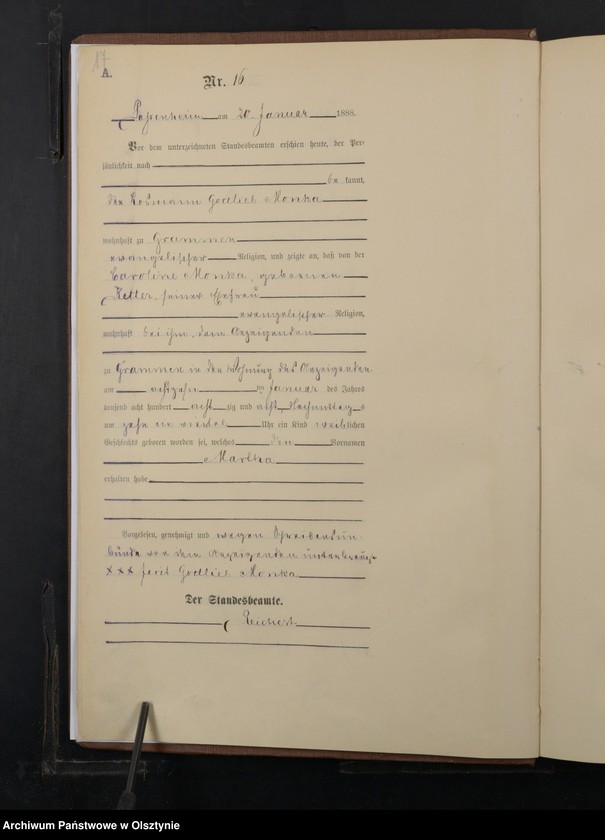 17
A.
Nr. 16
am 20 Januar 1888.
Vor dem unterzeichneten Standesbeamten erschien heute, der Per-
sönlichkeit nach
be kannt,
der Losmann Gottlieb Monka
wohnhaft zu Grammen
evangelischer Religion, und zeigte an, daß von der
Caroline Monka, geborenen
seiner Ehefrau
evangelischer Religion,
wohnhaft bei ihm, dem Anzeigenden
zu Grammen in der Wohnung des Anzeigenden
am achtzehn ten Januar des Jahres
tausend acht hundert acht zig und acht, Nachmittag s
um zehn ein viertel Uhr ein Kind weiblichen
Geschlechts geboren worden sei, welches den Vornamen
Martha
erhalten habe
Vorgelesen, genehmigt und wegen Schreibensun-
kunde von dem Anzeigenden unterkreuzt
××× Gottlieb Monka
Der Standesbeamte.
Reichert
Archiwum Państwowe w Olsztynie